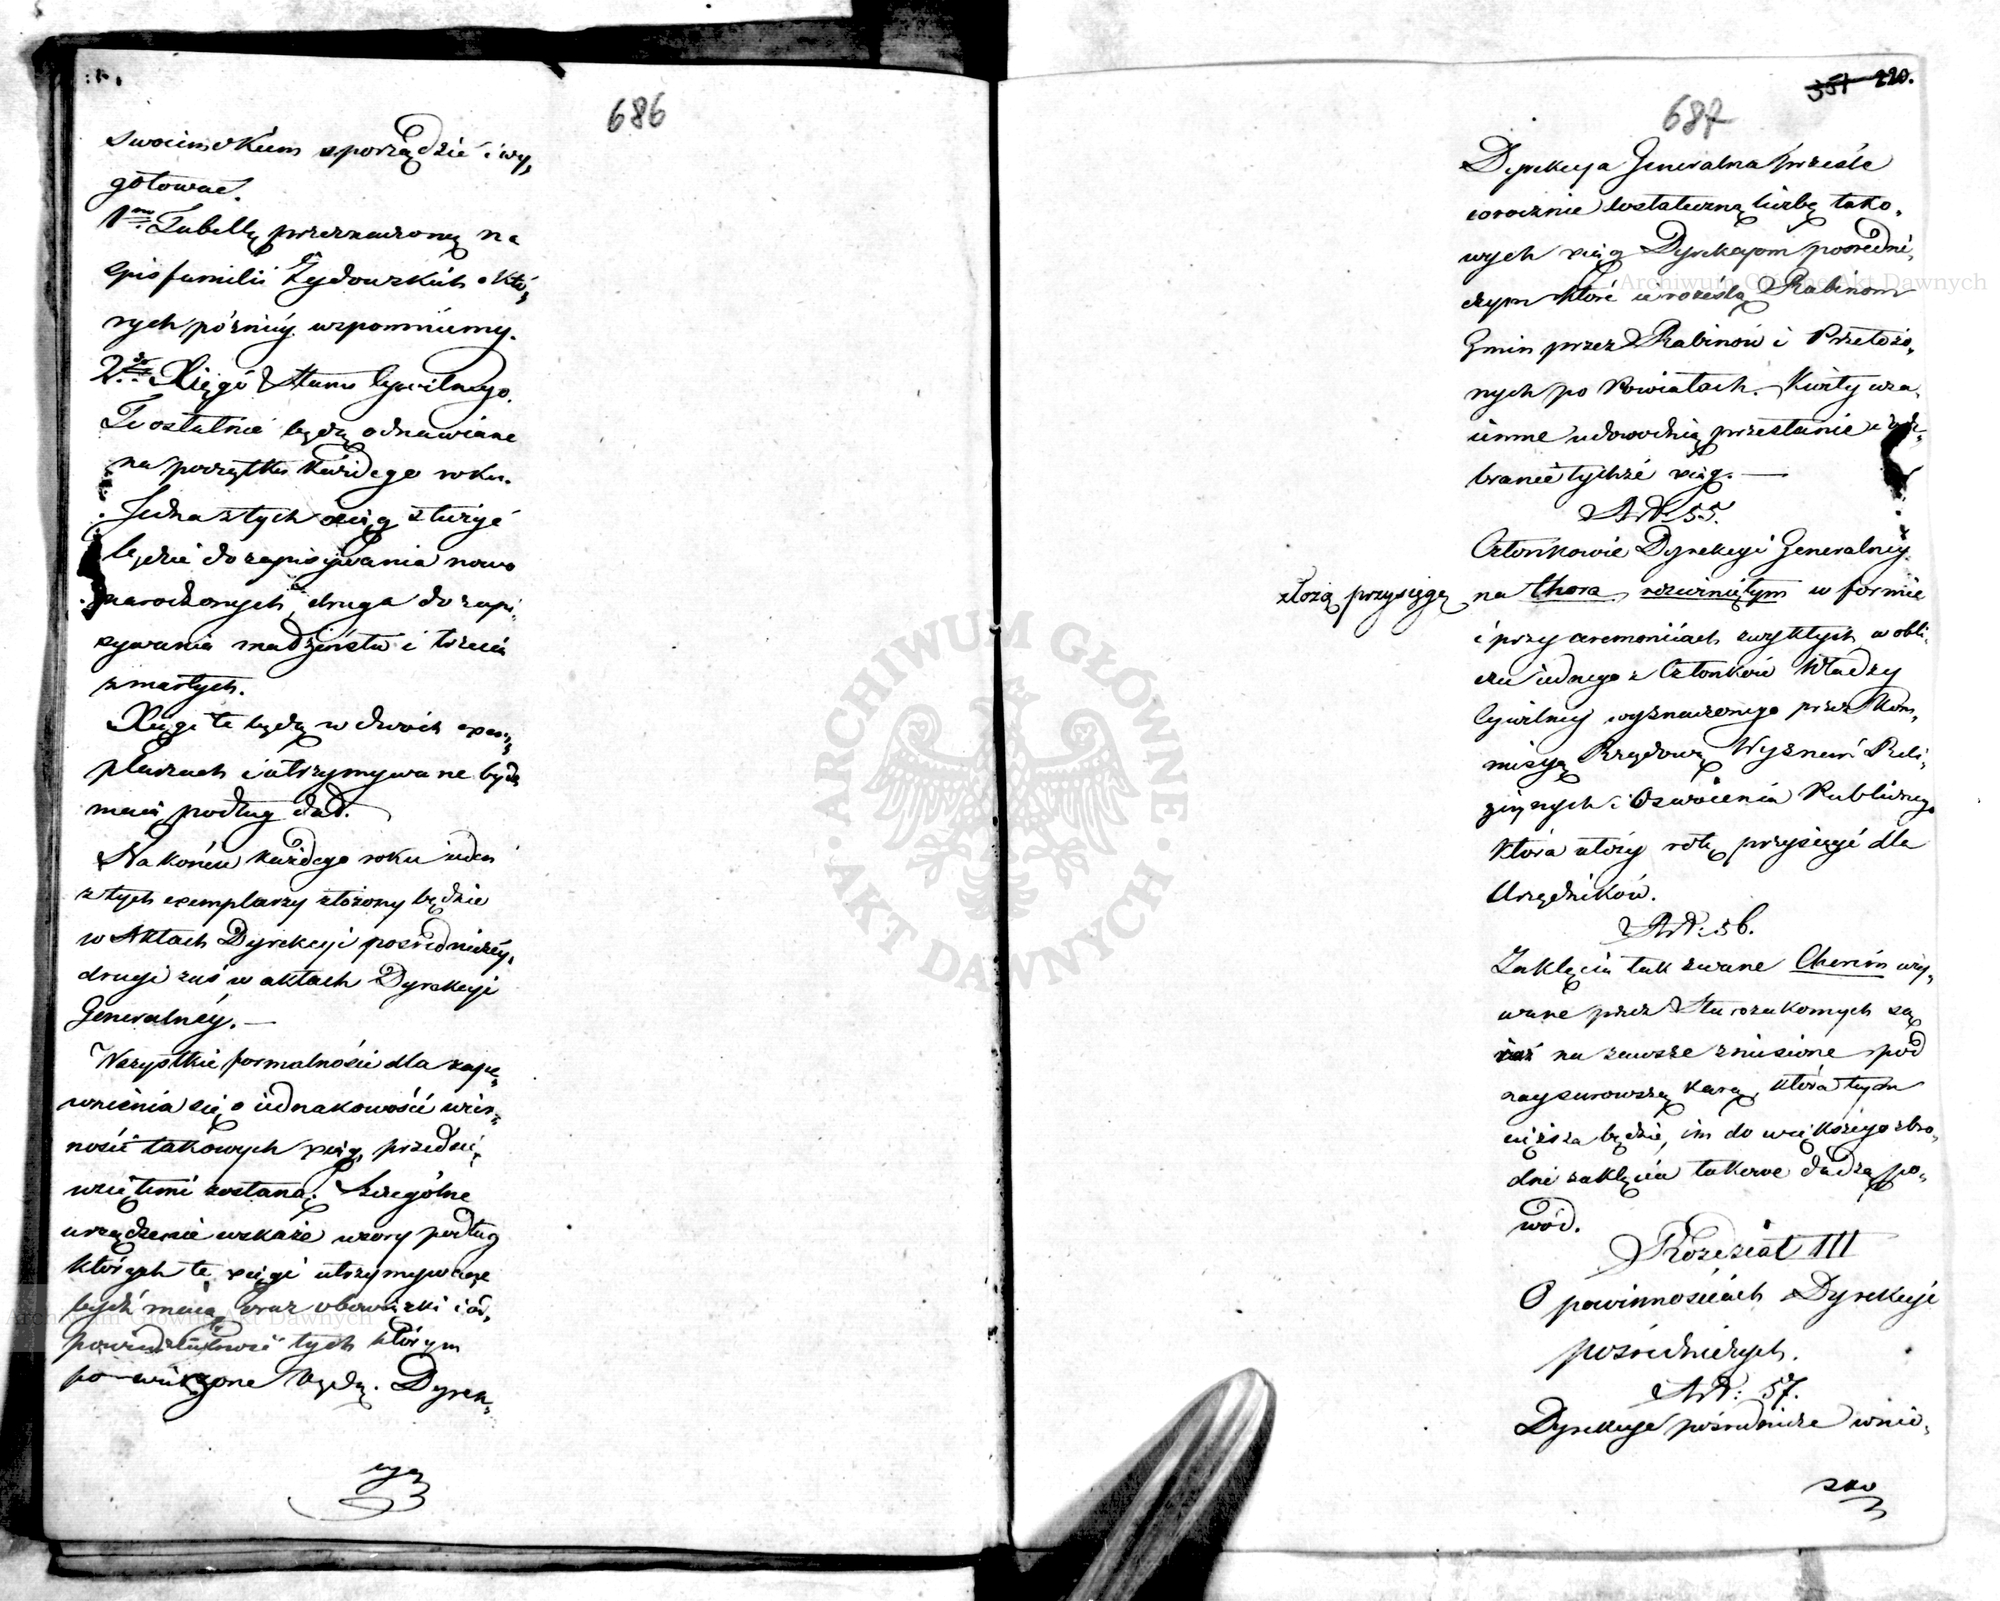 686
swoim okiem sporządzić i wy„
gotować.
1mo Tabellę przeznaczoną na
spis familii Żydowskich o któ„
rych późniéy wzpomniemy.
2do Xięgi Stanu Cywilnego.
Te ostatnie będą odnawiane
na początku każdego roku.
Jedna z tych xiąg służyć
będzie do zapisywania nowo
narodzonych, druga do zapi„
sywania małżeństw i trzecia
zmarłych.
Xięgi te będą w dwóch exem„
plarzach i utrzymywane bydź
maią podług dat.
Na końcu każdego roku ieden
z tych exemplarzy złożony będzie
w Aktach Dyrekcyi pośredniczéy,
drugi zaś w aktach Dyrekcyi
Generalnéy. —
Wszystkie formalności dla zape„
wnienia się o iednakowości i wier„
ności takowych xiąg, przedsię„
wziętemi zostaną. Szczególne
urządzenie wskaże wzory podług
których te xięgi utrzymywane
bydź maią oraz obowiązki i od„
powiedzialność tych którym
powierzone będą. Dyrek„
cya
357 220.
687
Dyrekcya Generalna prześle
corocznie dostateczną liczbę tako„
wych xiąg Dyrekcyom pośredni„
czym które ie rozeszlą Rabinom
Gmin przez Rabinów i Przełożo„
nych po Powiatach. Kwity wza„
iemne udowodnią przesłanie i ode„
branie tychże xiąg. —
Art. 55.
Członkowie Dyrekcyi Generalnéy
złożą przysięgę na Thora rozwiniętym w formie
i przy ceremoniiach zwykłych w obli„
czu iednego z Członków Władzy
Cywilnéy wyznaczonego przez Kom„
missyą Rządową Wyznań Reli„
giynych i Oświécenia Publicznego
która ułoży rotę przysięgi dla
Urzędników.
Art: 56.
Zaklęcia tak zwane Cherim uży„
wane przez Starozakonnych są
na zawsze zniesione pod
naysurowszą karą, która tym
cięższa będzie, im do większego zbro„
dni zaklęcia takowe dadzą po„
wód.
Rozdział III
O powinnościach Dyrekcyi
pośredniczych.
Art: 57.
Dyrekcye pośrednicze wnio„
sko
ARCHIWUM GŁÓWNE AKT DAWNYCH
Archiwum Główne Akt Dawnych
Archiwum Główne Akt Dawnych